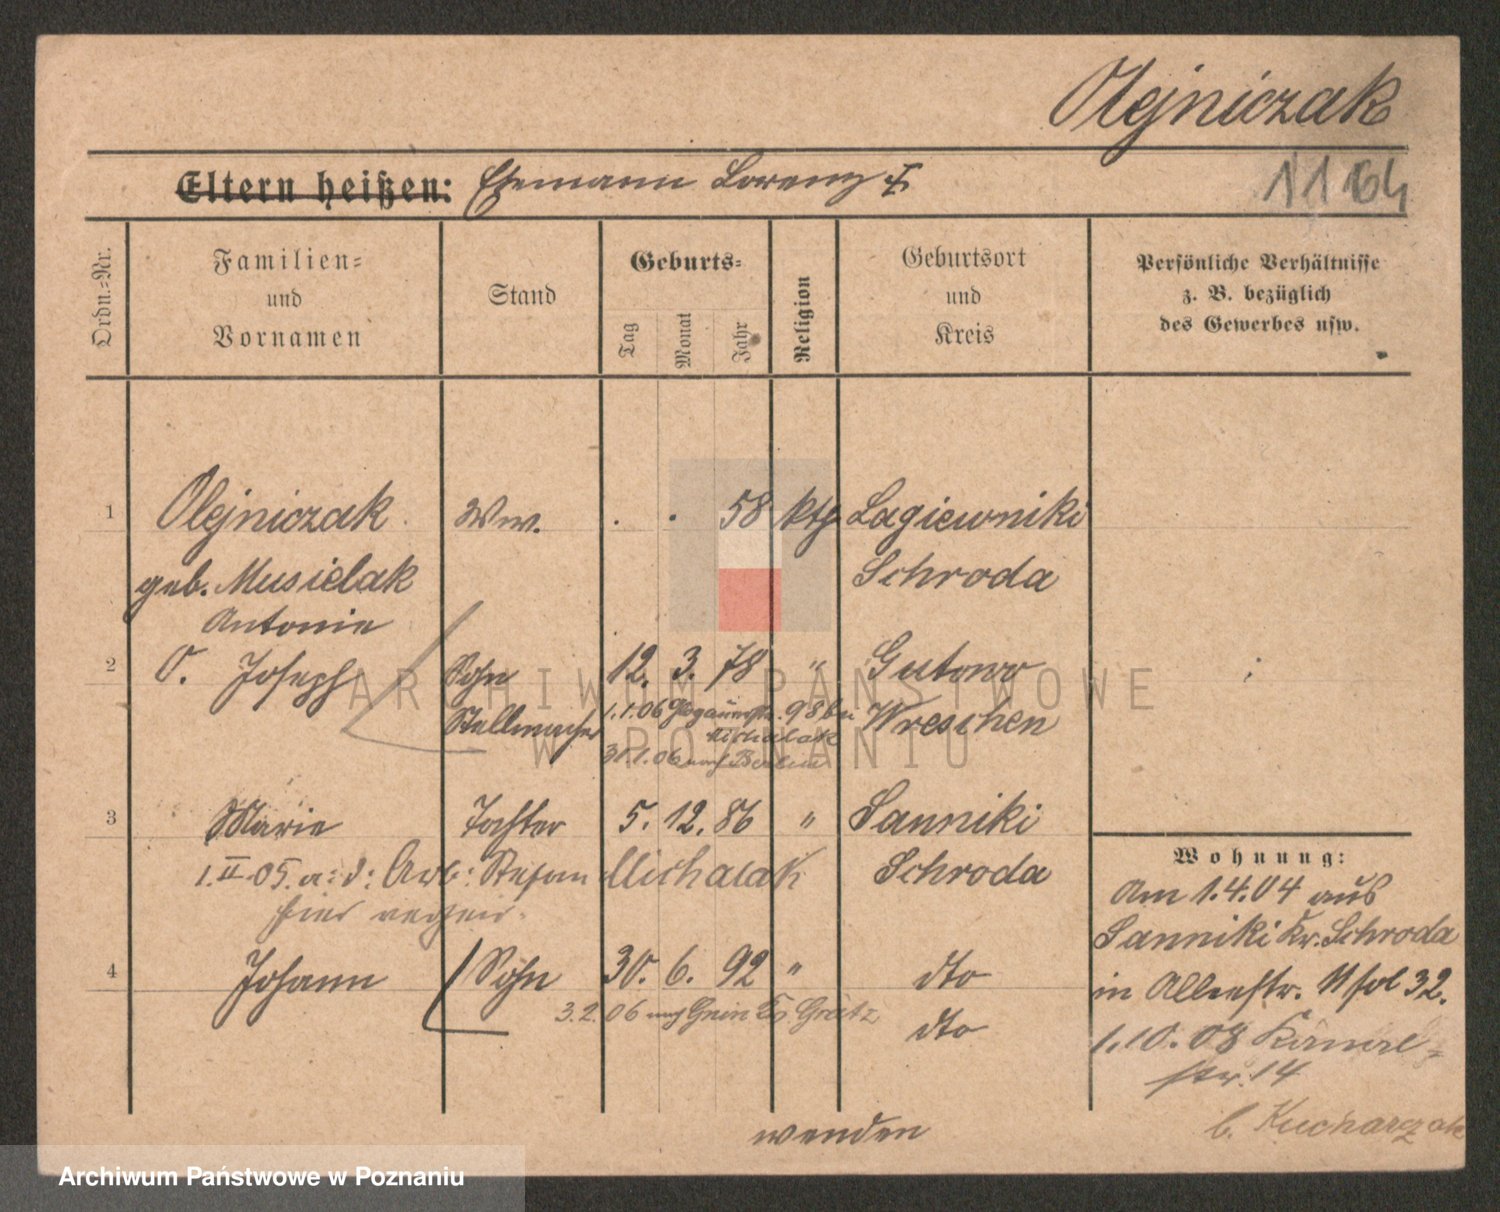 Olejniczak
1164
Eltern heißen: Ehemann Lorenz †
Ordn.-Nr.
Familien- und Vornamen
Stand
Geburts-
Tag
Monat
Jahr
Religion
Geburtsort und Kreis
Persönliche Verhältnisse
z. B. bezüglich
des Gewerbes usw.
1 Olejniczak Ww. . . 58 kth. Lagiewniki
geb. Musielak Schroda
Antonie
2 O. Joseph Sohn 12. 3. 78 " Gutowo
Stellmacher 1.1.06 98 bei Wreschen
Michalak
31.1.06 nach Berlin
3 Marie Tochter 5. 12. 86 " Sanniki
1.II.05. a: d: Arb: Stefan Michalak Schroda
hier
4 Johann Sohn 30. 6. 92 " dto
3.2.06 nach Grätz dto
Wohnung:
Am 1.4.04 aus
Sanniki Kr. Schroda
in Alleestr. 32.
1.10.08 Kanal-
str. 14
b. Kucharczak
wenden
ARCHIWUM PAŃSTWOWE
W POZNANIU
Archiwum Państwowe w Poznaniu